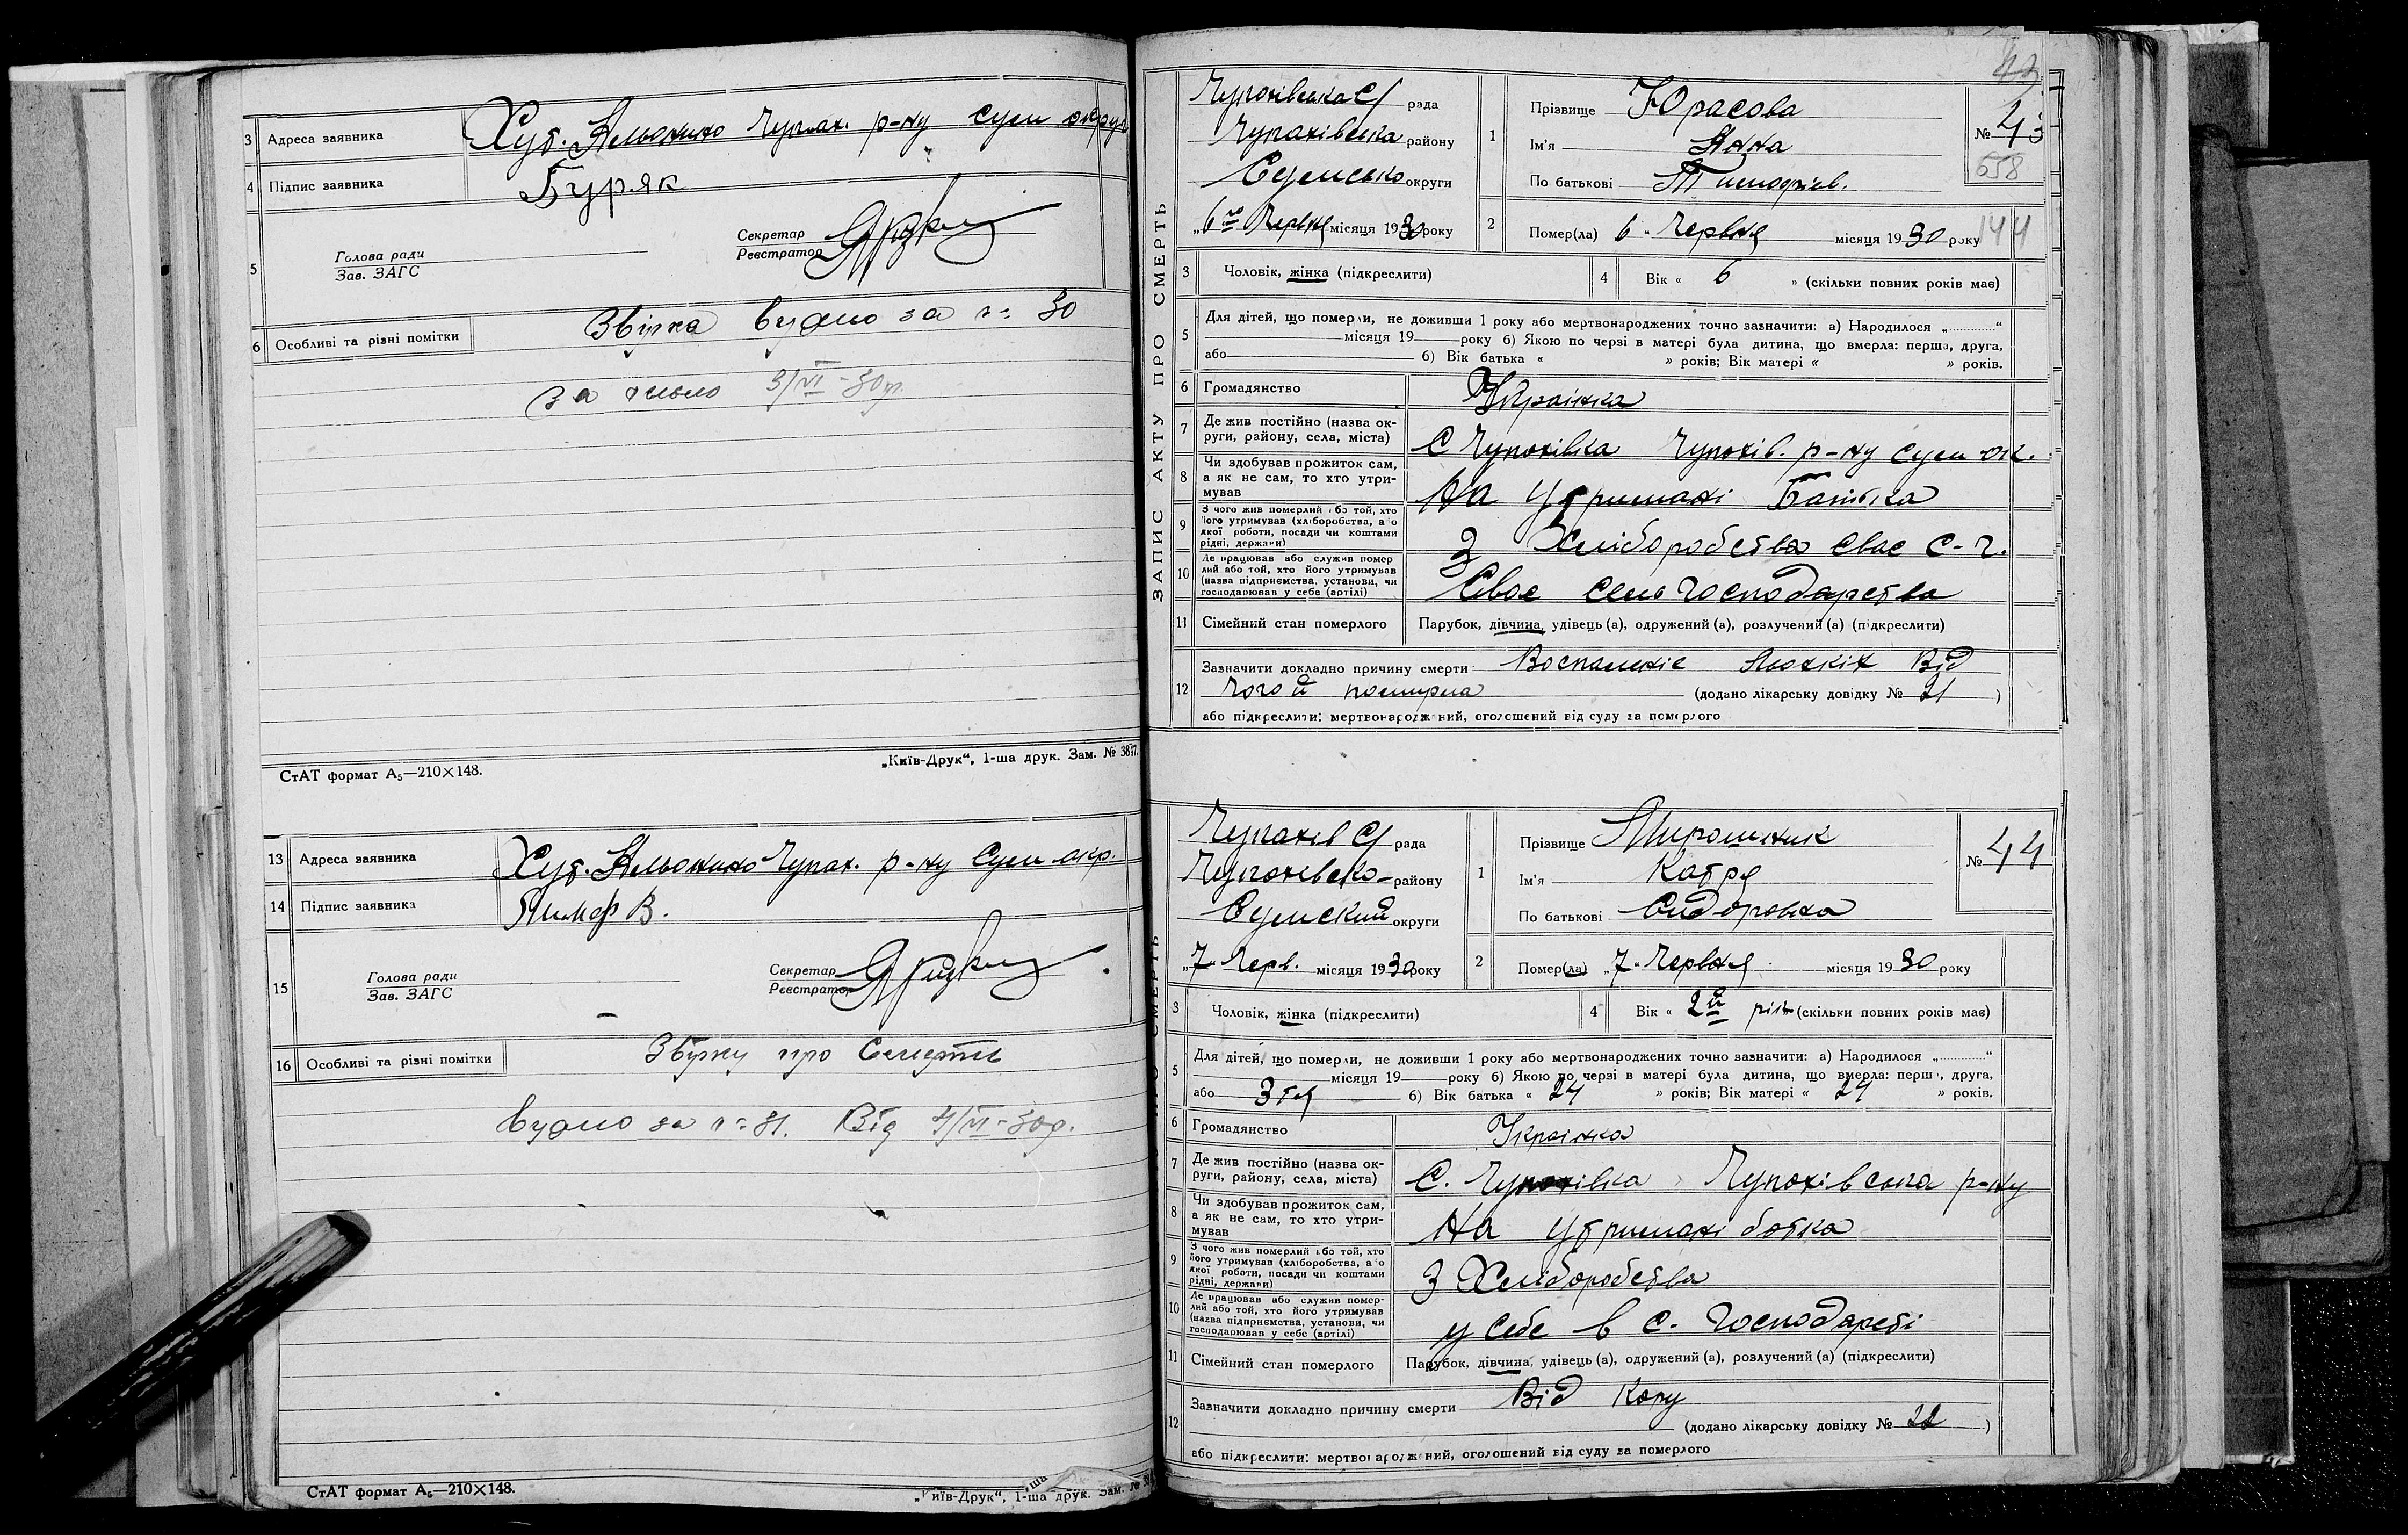 3 Адреса заявника Хут. Альонино Чупах. р-ну Сум округ
4 Підпис заявника Буряк
5 Голова ради
Зав. ЗАГС
Секретар
Реєстратор
6 Особливі та різні помітки Звірка видно за № 30
за число 3/VI-30р.
СтАТ формат А₅—210×148.
„Київ-Друк“, 1-ша друк. Зам. № 3877.
13 Адреса заявника Хут. Альонино Чупах. р-ну Сум окр.
14 Підпис заявника В.
15 Голова ради
Зав. ЗАГС
Секретар
Реєстратор
16 Особливі та різні помітки про Смерть
видно за №=31. Від 4/VI-30р.
СтАТ формат А₅—210×148.
„Київ-Друк“, 1-ша друк. Зам. №
43
ЗАПИС АКТУ ПРО СМЕРТЬ
Чупахівська С/ рада
Чупахівська району
Сумсько округи
„6го Червня місяця 1930 року
1 Прізвище Юрасова
Ім'я Анна
По батькові Тимофієв.
№ 43
658
2 Помер(ла) 6 „ Червня місяця 1930 року
144
3 Чоловік, жінка (підкреслити)
4 Вік « 6 » (скільки повних років має)
5 Для дітей, що померли, не доживши 1 року або мертвонароджених точно зазначити: а) Народилося „............“
місяця 19 року б) Якою по черзі в матері була дитина, що вмерла: перша, друга,
або б) Вік батька « » років; Вік матері « » років.
6 Громадянство Українка
7 Де жив постійно (назва округи, району, села, міста) С Чупахівка Чупахів. р-ну Сум ок.
8 Чи здобував прожиток сам, а як не сам, то хто утримував На Утримані Батька
9 З чого жив померлий або той, хто його утримував (хліборобства, або якої роботи, посади чи коштами рідні, держави) З Хліборобства свое с-г.
10 Де працював або служив померлий або той, хто його утримував (назва підприємства, установи, чи господарював у себе (артілі) Свое сель господарства
11 Сімейний стан померлого Парубок, дівчина, удівець (а), одружений (а), розлучений (а) (підкреслити)
12 Зазначити докладно причину смерти Воспаленіе Льохкіх Від
чого й помирла (додано лікарську довідку № 21 )
або підкреслити: мертвонароджений, оголошений від суду за померлого
Чупахів С/ рада
Чупахівсько- району
Сумский округи
„7„ Черв. місяця 1930 року
1 Прізвище Мирошник
Ім'я Катря
По батькові Сидоровна
№ 44
2 Помер(ла) „7„ Червня місяця 1930 року
3 Чоловік, жінка (підкреслити)
4 Вік « 2й рік (скільки повних років має)
5 Для дітей, що померли, не доживши 1 року або мертвонароджених точно зазначити: а) Народилося „............“
місяця 19 року б) Якою по черзі в матері була дитина, що вмерла: перша, друга,
або 3тя б) Вік батька « 24 » років; Вік матері « 24 » років.
6 Громадянство Українка
7 Де жив постійно (назва округи, району, села, міста) С. Чупахівка Чупахівська р-ну
8 Чи здобував прожиток сам, а як не сам, то хто утримував На Утримані батка
9 З чого жив померлий або той, хто його утримував (хліборобства, або якої роботи, посади чи коштами рідні, держави) З Хліборобства
10 Де працював або служив померлий або той, хто його утримував (назва підприємства, установи, чи господарював у себе (артілі) у себе в с. Господарстві
11 Сімейний стан померлого Парубок, дівчина, удівець (а), одружений (а), розлучений (а) (підкреслити)
12 Зазначити докладно причину смерти Від Кору
(додано лікарську довідку № 22 )
або підкреслити: мертвонароджений, оголошений від суду за померлого